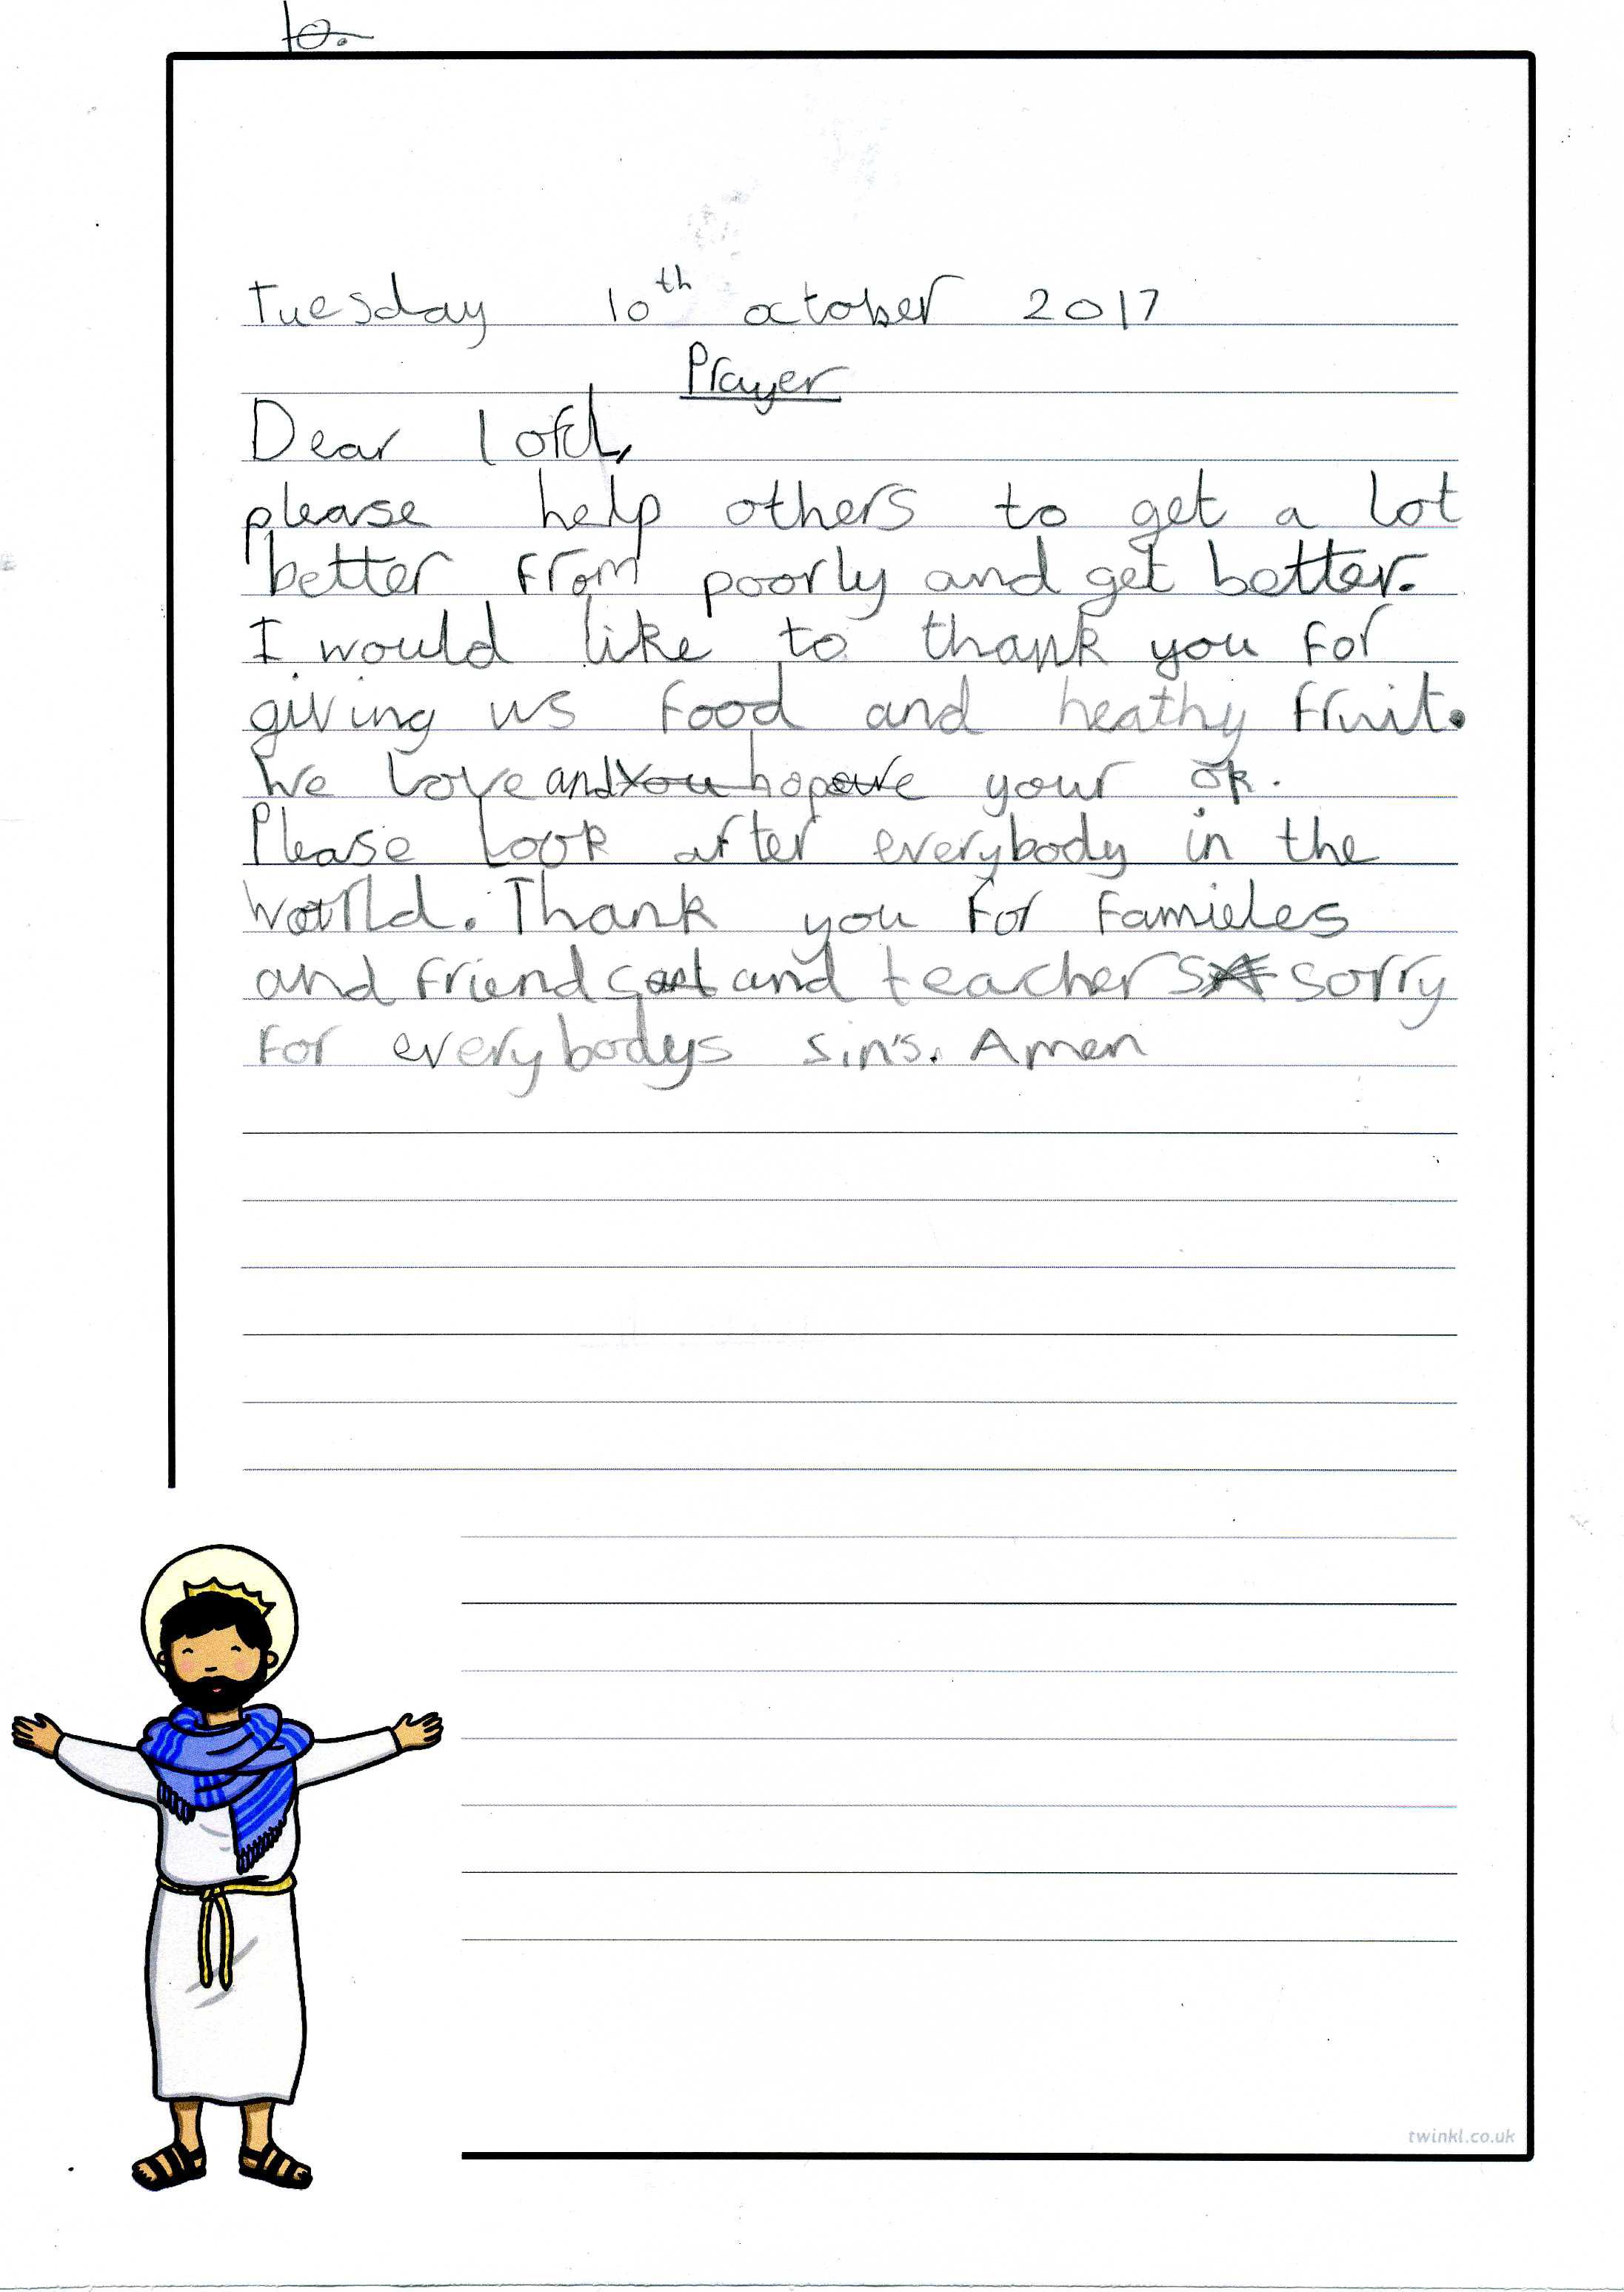 to.
Tuesday 10th october 2017
Prayer
Dear lord,
please help others to get a lot
better from poorly and get better.
I would like to thank you for
giving us food and heathy fruit.
We love and you hope your ok.
Please look after everybody in the
world. Thank you for famieles
and friends and teachers sorry
for everybodys sin's. Amen
twinkl.co.uk